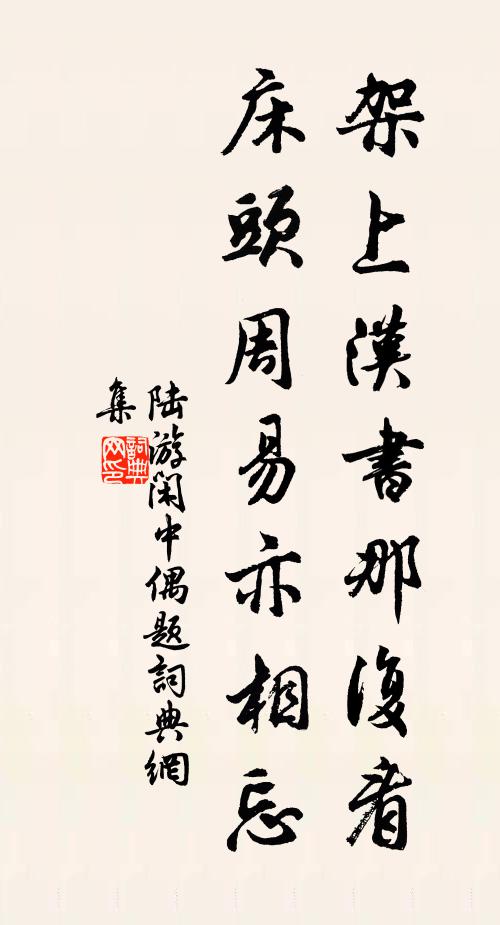 架上漢書那復看
床頭周易亦相忘
陸游閑中偶題詞典網
集